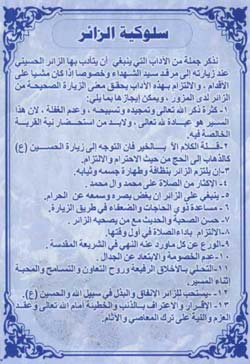 سلوكية الزائر
نذكر جملة من الآداب التي ينبغي أن يتأدب بها الزائر الحسيني
عند زيارته الى مرقد سيد الشهداء وخصوصا إذا كان مشيا على
الأقدام , والالتزام بهذه الآداب يحقق معنى الزيارة الصحيحة من
الزائر لدى المزور , ويمكن إيجازها بما يلي:
١- كثرة ذكر الله تعالى وتحميده وتسبيحه , وعدم الغفلة , لان هذا
المسير هو عبادة لله تعالى , ولابد من استحضار نية القربة
الخالصة فيه.
٢-قلة الكلام الا بالخير فان التوجه الى زيارة الحسين (ع)
كالذهاب إلى الحج من حيث الاحترام والالتزام.
٣-إن يلتزم الزائر بنظافة وطهارة جسمه وثيابه.
٤- الإكثار من الصلاة على محمد وال محمد.
٥- ينبغي على الزائر إن يغض بصره وسمعه عن الحرام.
٦- مساعدة ذوي الحاجات والضعفاء في طريق الزيارة.
٧- حسن الصحبة والحديث مع من يصحبه الزائر.
٨- الالتزام بأداء الصلاة في أول وقتها.
٩-الورع عن كل ماورد عنه النهي في الشريعة المقدسة.
١٠-عدم الخصومة والابتعاد عن الجدال.
١١-التحلي بالاخلاق الرفيعة وروح التعاون والتسامح والمحبة
اثناء المسير.
١٢-يستحب للزائر الإنفاق والبذل في سبيل الله والحسين (ع).
١٣-الإقرار والاعتراف بالذنب والخطيئة أمام الله تعالى وعقد
العزم والنية على ترك المعاصي والآثام.